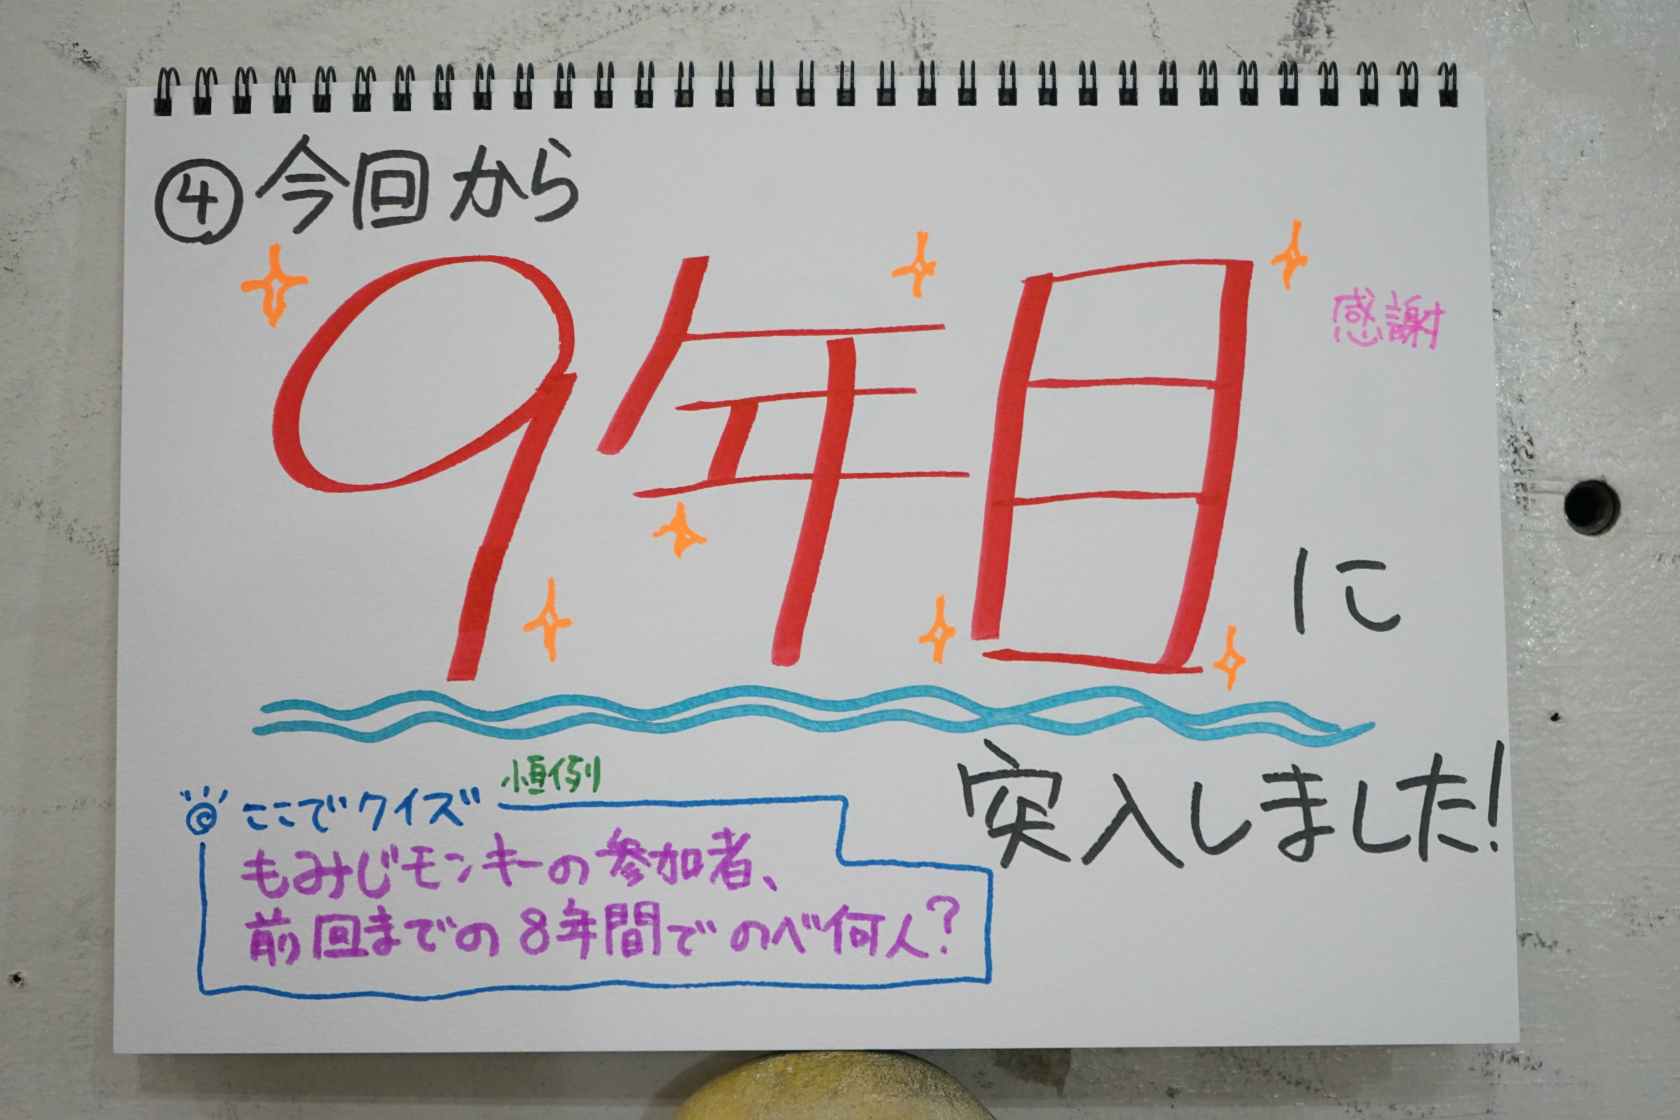 ④今回から
9年目に
感謝
突入しました!
恒例
ここでクイズ
もみじモンキーの参加者、
前回までの8年間でのべ何人?